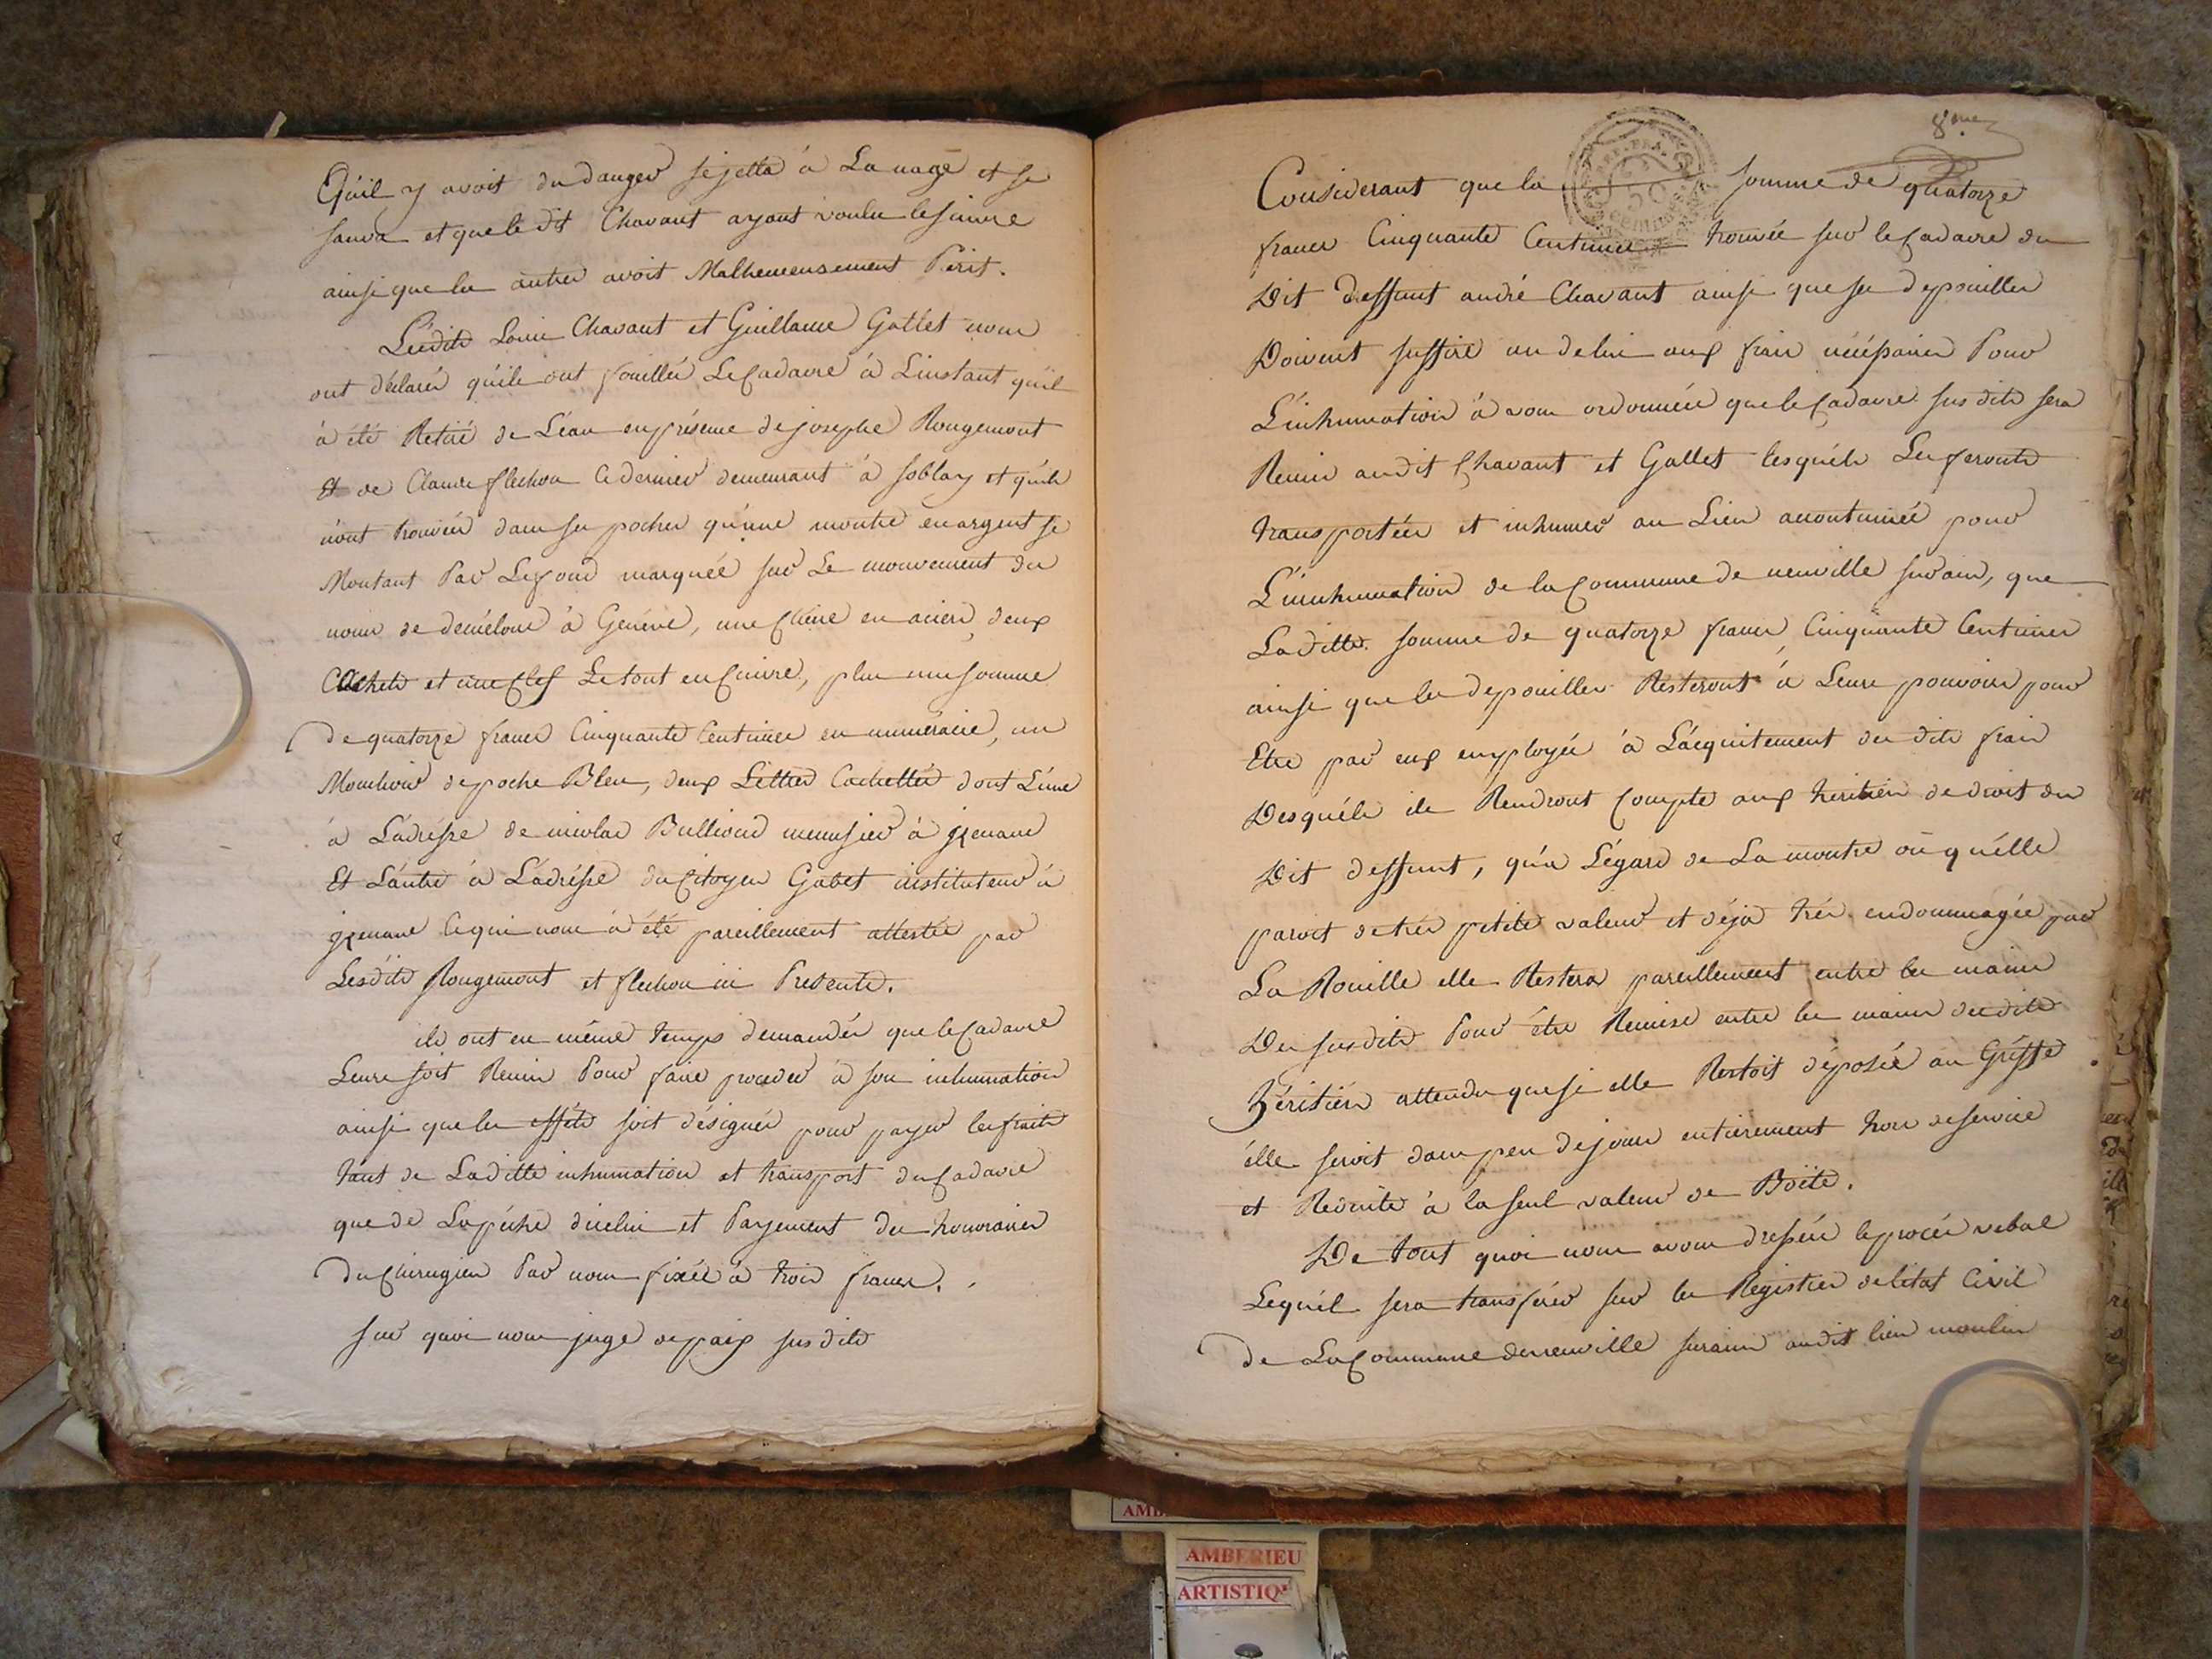 Qu'il y avoit du danger se jetta à La nage et se
sauva et que le dit Chavant ayant voulu le suivre
ainsi que les autres avoit Malheureusement Périt.
Lesdits Louis Chavant et Guillaume Gallet nous
ont déclarés qu'ils ont fouillés Le Cadavre à L'instant qu'il
à été Retiré de L'éau en présence de joseph Rougemont
Et de Claude flechon Ce dernier demeurant à soblay et qu'ils
n'ont trouvés dans ses poches qu'une montre en argent se
Montant Par Le fond marquée sur Le mouvement du
nom de à Genève, une Chêne en acier, deux
Cachets et une Clef Le tout en Cuivre, plus une somme
de quatorze francs Cinquante Centimes en numéraire, un
Mouchoir de poche Bleu, deux Lettres Cachettés dont L'une
à L'adrésse de nicolas Bullioud menusier à
Et L'autre à L'adrésse du Citoyen Gabet instituteur à
ce qui nous à été pareillement attestée par
Lesdits Rougemont et flechon ici Presents.
ils ont en même temps demandés que le Cadavre
Leurs soit Remis Pour faire proceder à son inhumation
ainsi que les effets soit désignés pour payer les fraits
tant de Laditte inhumation et transport du Cadavre
que de La pêche d'icelui et Payement des honoraires
du Chirugien Par nous fixés à trois francs.
sur quoi nous juge de paix sus dits
8me
Considerant que la somme de quatorze
francs Cinquante Centimes trouvée sur le Cadavre du
Dit deffunt andré Chavant ainsi que ses depouilles
Doivent suffire au delas aux frais nécéssaires Pour
L'inhumation à vons ordonnées que le Cadavre sus dits sera
Remis audit Chavant et Gallet lesquéls Les feronts
transportées et inhumer au Lieu accoutumée pour
L'innhumation de la Commune de neuville sur ain, que
Laditte somme de quatorze francs Cinquante Centimes
ainsi que les depouilles Resteront à Leurs pouvoirs pour
Etre par eux employés à L'acquitement des dits frais
Desquéls ils Rendront Compte aux héritiers de droit du
Dit deffunt, qu'a L'égard de La montre où qu'élle
paroit de très petite valeur et déja très endommagée par
La Rouille elle Restera pareillement entre les mains
Des susdits Pour être Remise entre les mains desdits
héritiérs attendu que si elle Restoit déposée au Gréffe
élle seroit dans peu de jours entierement hors de service
et Reduite à la seul valeur de Boëte.
De tout quoi nous avons dressés le procés vebal
Lequél sera transférer sur les Régistres de létat Civil
de La Commune de neuville surain audit lieu moulin
AMBERIEU
ARTISTIQ